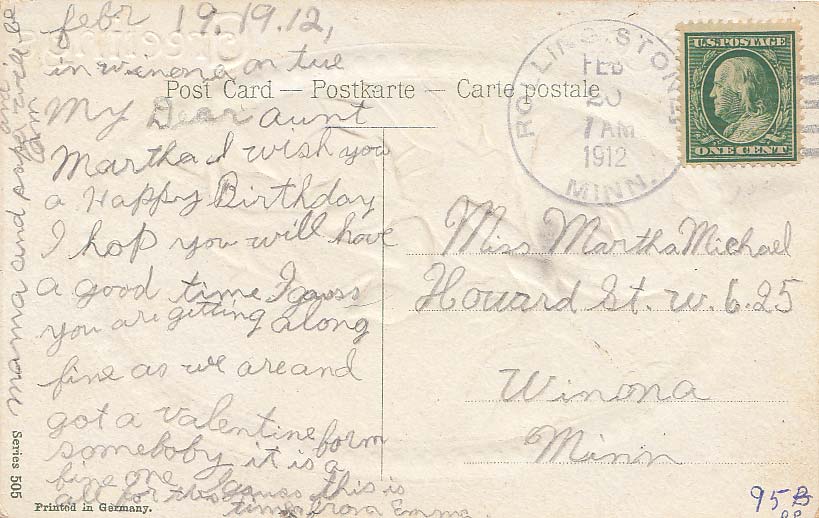 febr 19.19.12,
in winona on tue
Post Card — Postkarte — Carte postale
My Dear aunt
Martha I wish you
a Happy Birthday
I hop you will have
a good time I gauss
you are getting along
fine as we are and
got a valentine form
someboby it is a
fine one I gauss this is
all for this time from Emma
mama and papa will be
Series 505
Printed in Germany.
ROLLINGSTONE
FEB
20
7 AM
1912
MINN.
U.S. POSTAGE
ONE CENT
Miss Martha Michael
Howard St. w. 6.25
Winona
Minn
95B